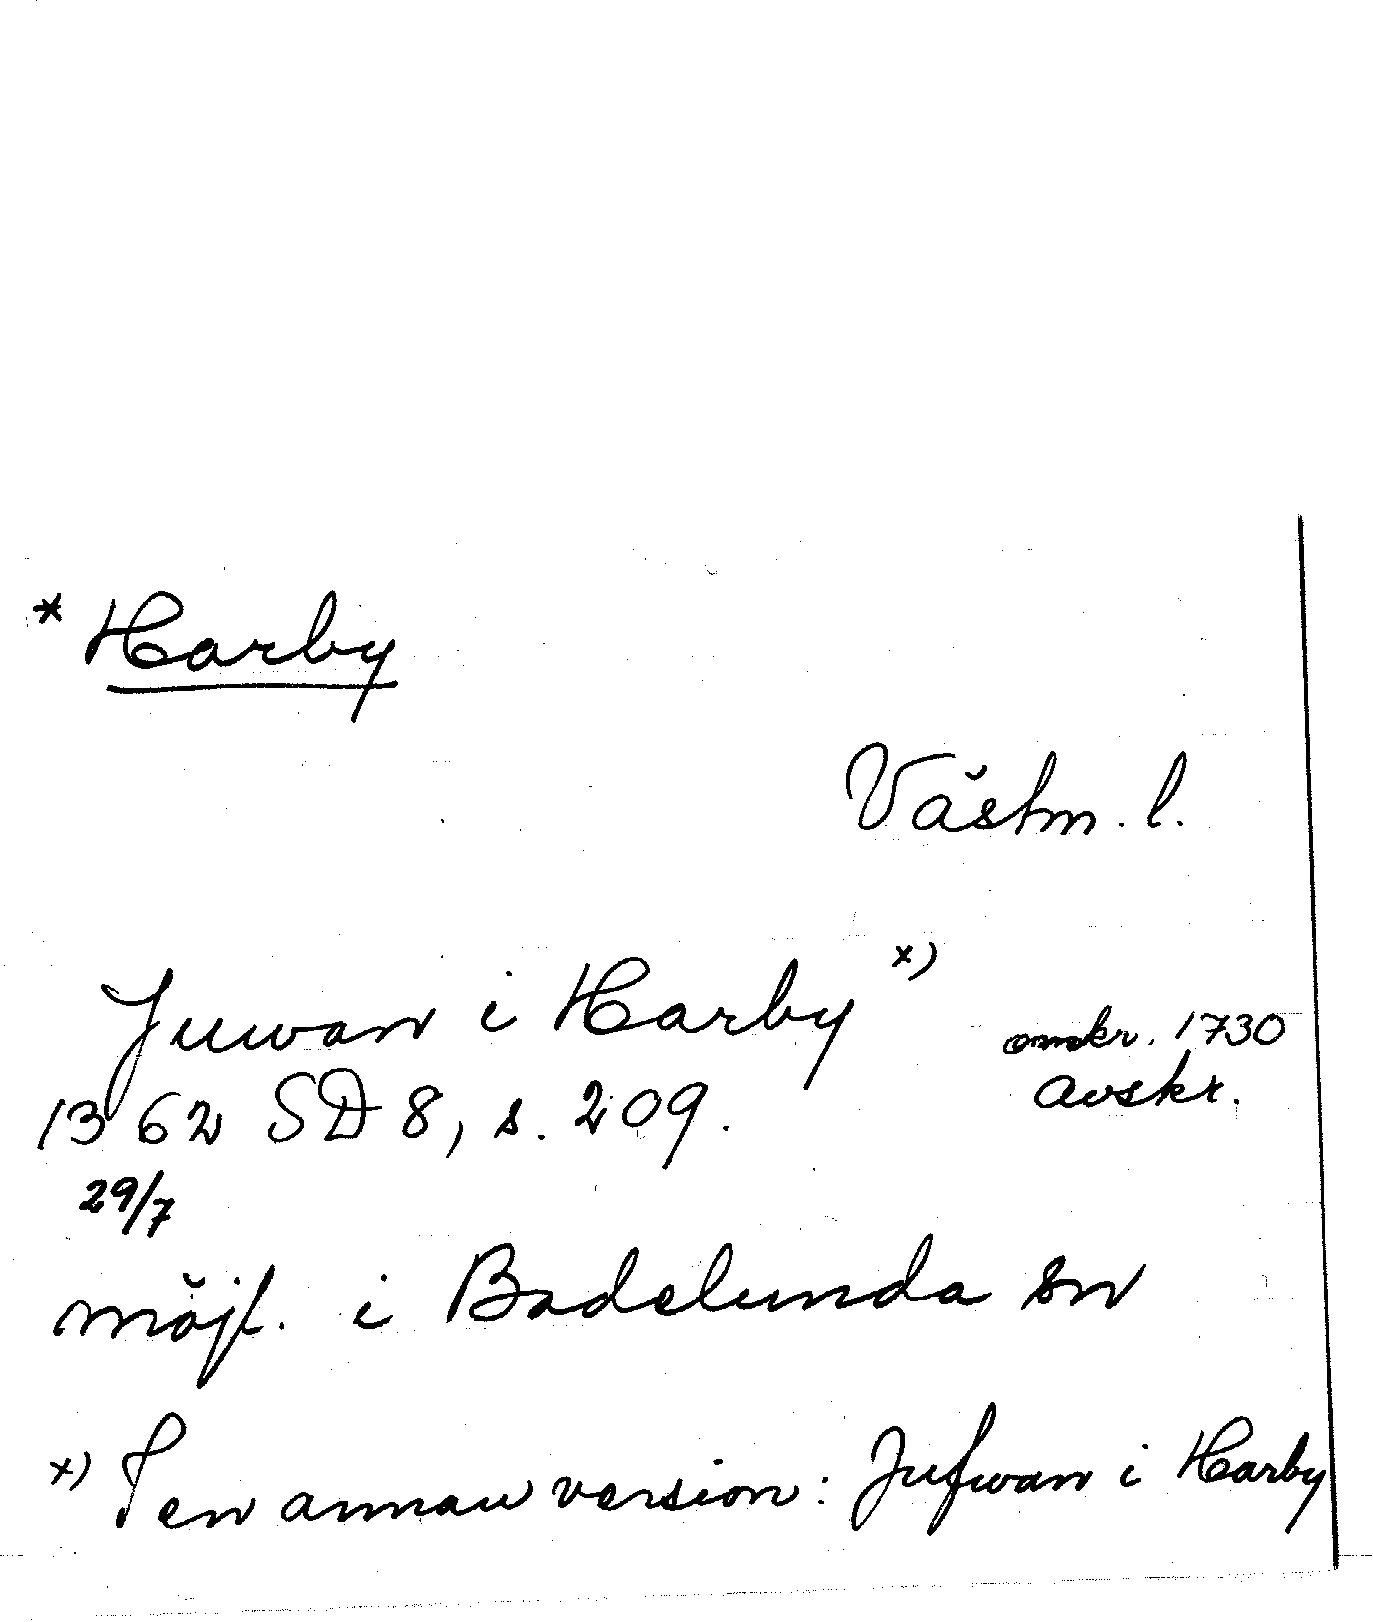 * Harby
Västm. l.
Juwan i Harby x)
omkr. 1730
avskr.
1362 SD 8, s. 209.
29/7
möjl. i Badelunda sn
x) I en annan version: Jufwan i Harby